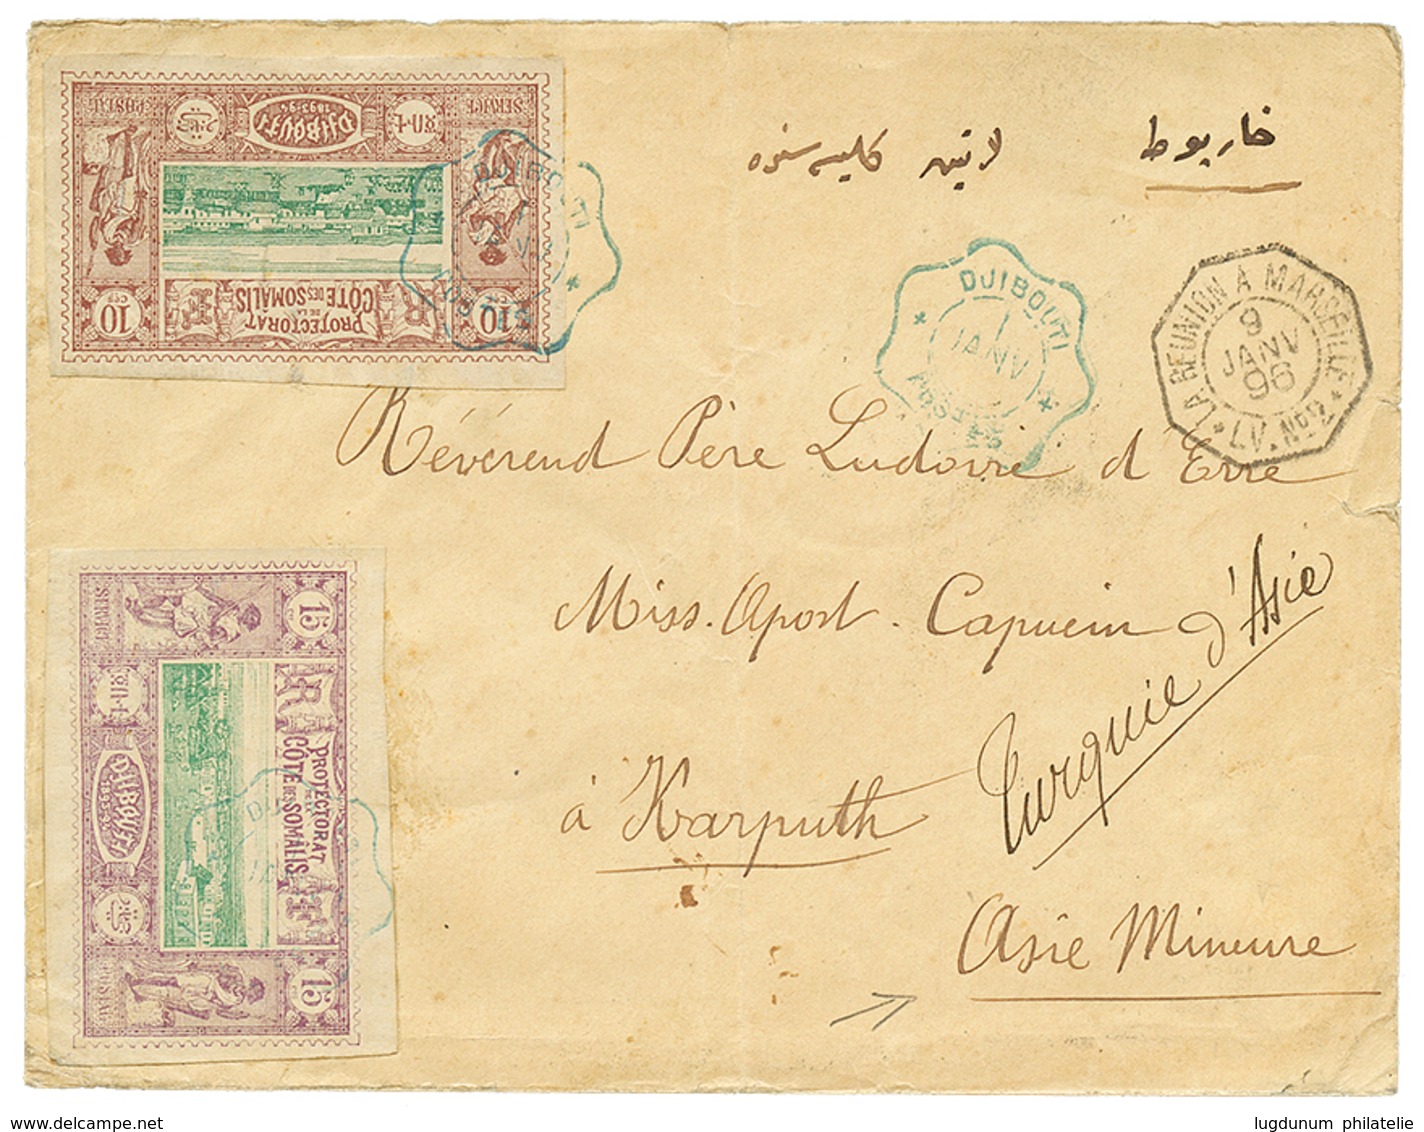 SERVICE POSTAL
DJIBOUTI
1893-94
PROTECTORAT
DE LA
CÔTE DES SOMALIS
RF
10 10
DJIBOUTI
POSTES
خاربوط
لاتين كليسه سنده
DJIBOUTI
1
JANV
POSTES
LA REUNION A MARSEILLE
9
JANV
96
L.V. Nº2
Révérend Père Ludovic d'Erre
Miss. Apost. Capucin
à Karputh
Turquie d'Asie
Asie Mineure
15 15
SERVICE POSTAL
DJIBOUTI
1893-94
PROTECTORAT
DE LA
CÔTE DES SOMALIS
RF
delcampe.net
lugdunum philatelie